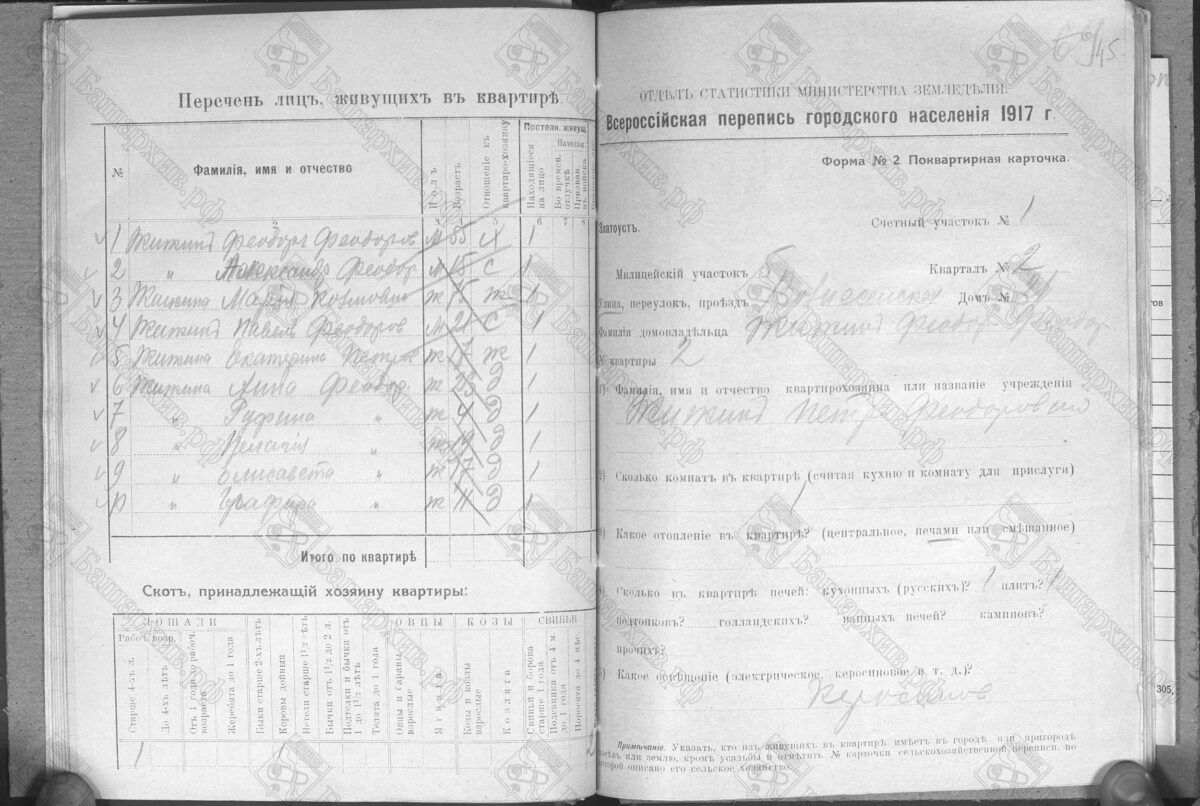 Перечень лицъ, живущихъ въ квартирѣ.
№
Фамилія, имя и отчество
Полъ
Возрастъ
Отношеніе къ квартиро-хозяину
Постоян. живущ.
Находящіеся на лицо
Во времен. отлучкѣ
2 3 4 5 6 7 8
1 Жижинъ Феодоръ Феодоров М 55 Х 1
2 " Александр Феодор. М 15 С 1
3 Жижина Марія Козмовна ж ж 1
4 Жижинъ Павелъ Феодоров М 21 С 1
5 Жижина Екатерина Петров ж 17 ж 1
6 Жижина Анна Феодор. ж 23 д 1
7 " Руфина " ж 4 д 1
8 " Пелагія " ж 19 д 1
9 " Елисавета " ж 17 д 1
10 " " ж 11 д 1
Итого по квартирѣ
Скотъ, принадлежащій хозяину квартиры:
ЛОШАДИ
ОВЦЫ
КОЗЫ
СВИНЬИ
Рабоч. возр.
Старше 4-хъ л.
До 4-хъ лѣтъ
Отъ 1 года до рабоч. возраста
Жеребята до 1 года
Быки старше 2-хъ лѣтъ
Коровы дойныя
Нетели старше 1½ лѣтъ
Бычки отъ 1½ до 2 л.
Подтелки и бычки отъ 1 до 1½ лѣтъ
Телята до 1 года
Овцы и бараны взрослые
Ягнята
Козы и козлы взрослые
Козлята
Свиньи и борова старше 1 года
Подсвинки отъ 4 м. до 1 года
Поросята до 4 мѣс.
1 1
45
ОТДѢЛЪ СТАТИСТИКИ МИНИСТЕРСТВА ЗЕМЛЕДѢЛІЯ.
Всероссійская перепись городского населенія 1917 г.
Форма № 2. Поквартирная карточка.
Златоустъ.
Счетный участокъ № 1
Милицейскій участокъ 5
Кварталъ № 2
Улица, переулокъ, проѣздъ Вознесенская Домъ №
Фамилія домовладѣльца Жижинъ Феодор Феодор.
№ квартиры 2
1) Фамилія, имя и отчество квартирохозяина или названіе учрежденія
Жижинъ Петръ Феодорович
2) Сколько комнатъ въ квартирѣ (считая кухню и комнату для прислуги)
1
3) Какое отопленіе въ квартирѣ? (центральное, печами или смѣшанное)
4) Сколько въ квартирѣ печей: кухонныхъ (русскихъ)? 1 плитъ? 1
подтопковъ? голландскихъ? ванныхъ печей? каминовъ?
прочихъ?
5) Какое освѣщеніе (электрическое, керосиновое и т. д.)?
Керосинов
Примѣчаніе. Указать, кто изъ живущихъ въ квартирѣ имѣетъ въ городѣ или пригородѣ
посѣвъ или землю, кромѣ усадьбы и отмѣтить № карточки сельскохозяйственной переписи, по
которой описано его сельское хозяйство.
305,
Башархив.рф